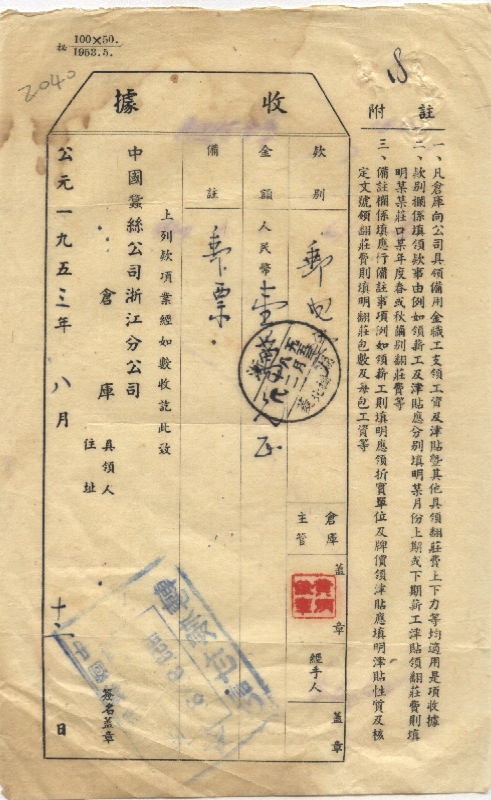 秘 100×50.
1953.5.
2040
收據
附註
一、凡倉庫向公司具領備用金職工支領工資及津貼暨其他具領翻莊費上下力等均適用是項收據
二、款別欄係填領款事由例如領薪工及津貼應分別填明某月份上期或下期薪工津貼領翻莊費則填
明某某莊口某年度春或秋繭別翻莊費等
三、備註欄係填應行備註事項例如領薪工則填明應領折實單位及牌價領津貼應填明津貼性質及核
定文號領翻莊費則填明翻莊包數及每包工資等
款別 郵
金額 人民幣
備註 郵票
倉庫主管 蓋章
經手人 蓋章
上列款項業經如數收訖此致
中國蠶絲公司浙江分公司
倉庫 具領人 簽名蓋章
住址
公元一九五三年八月十二日